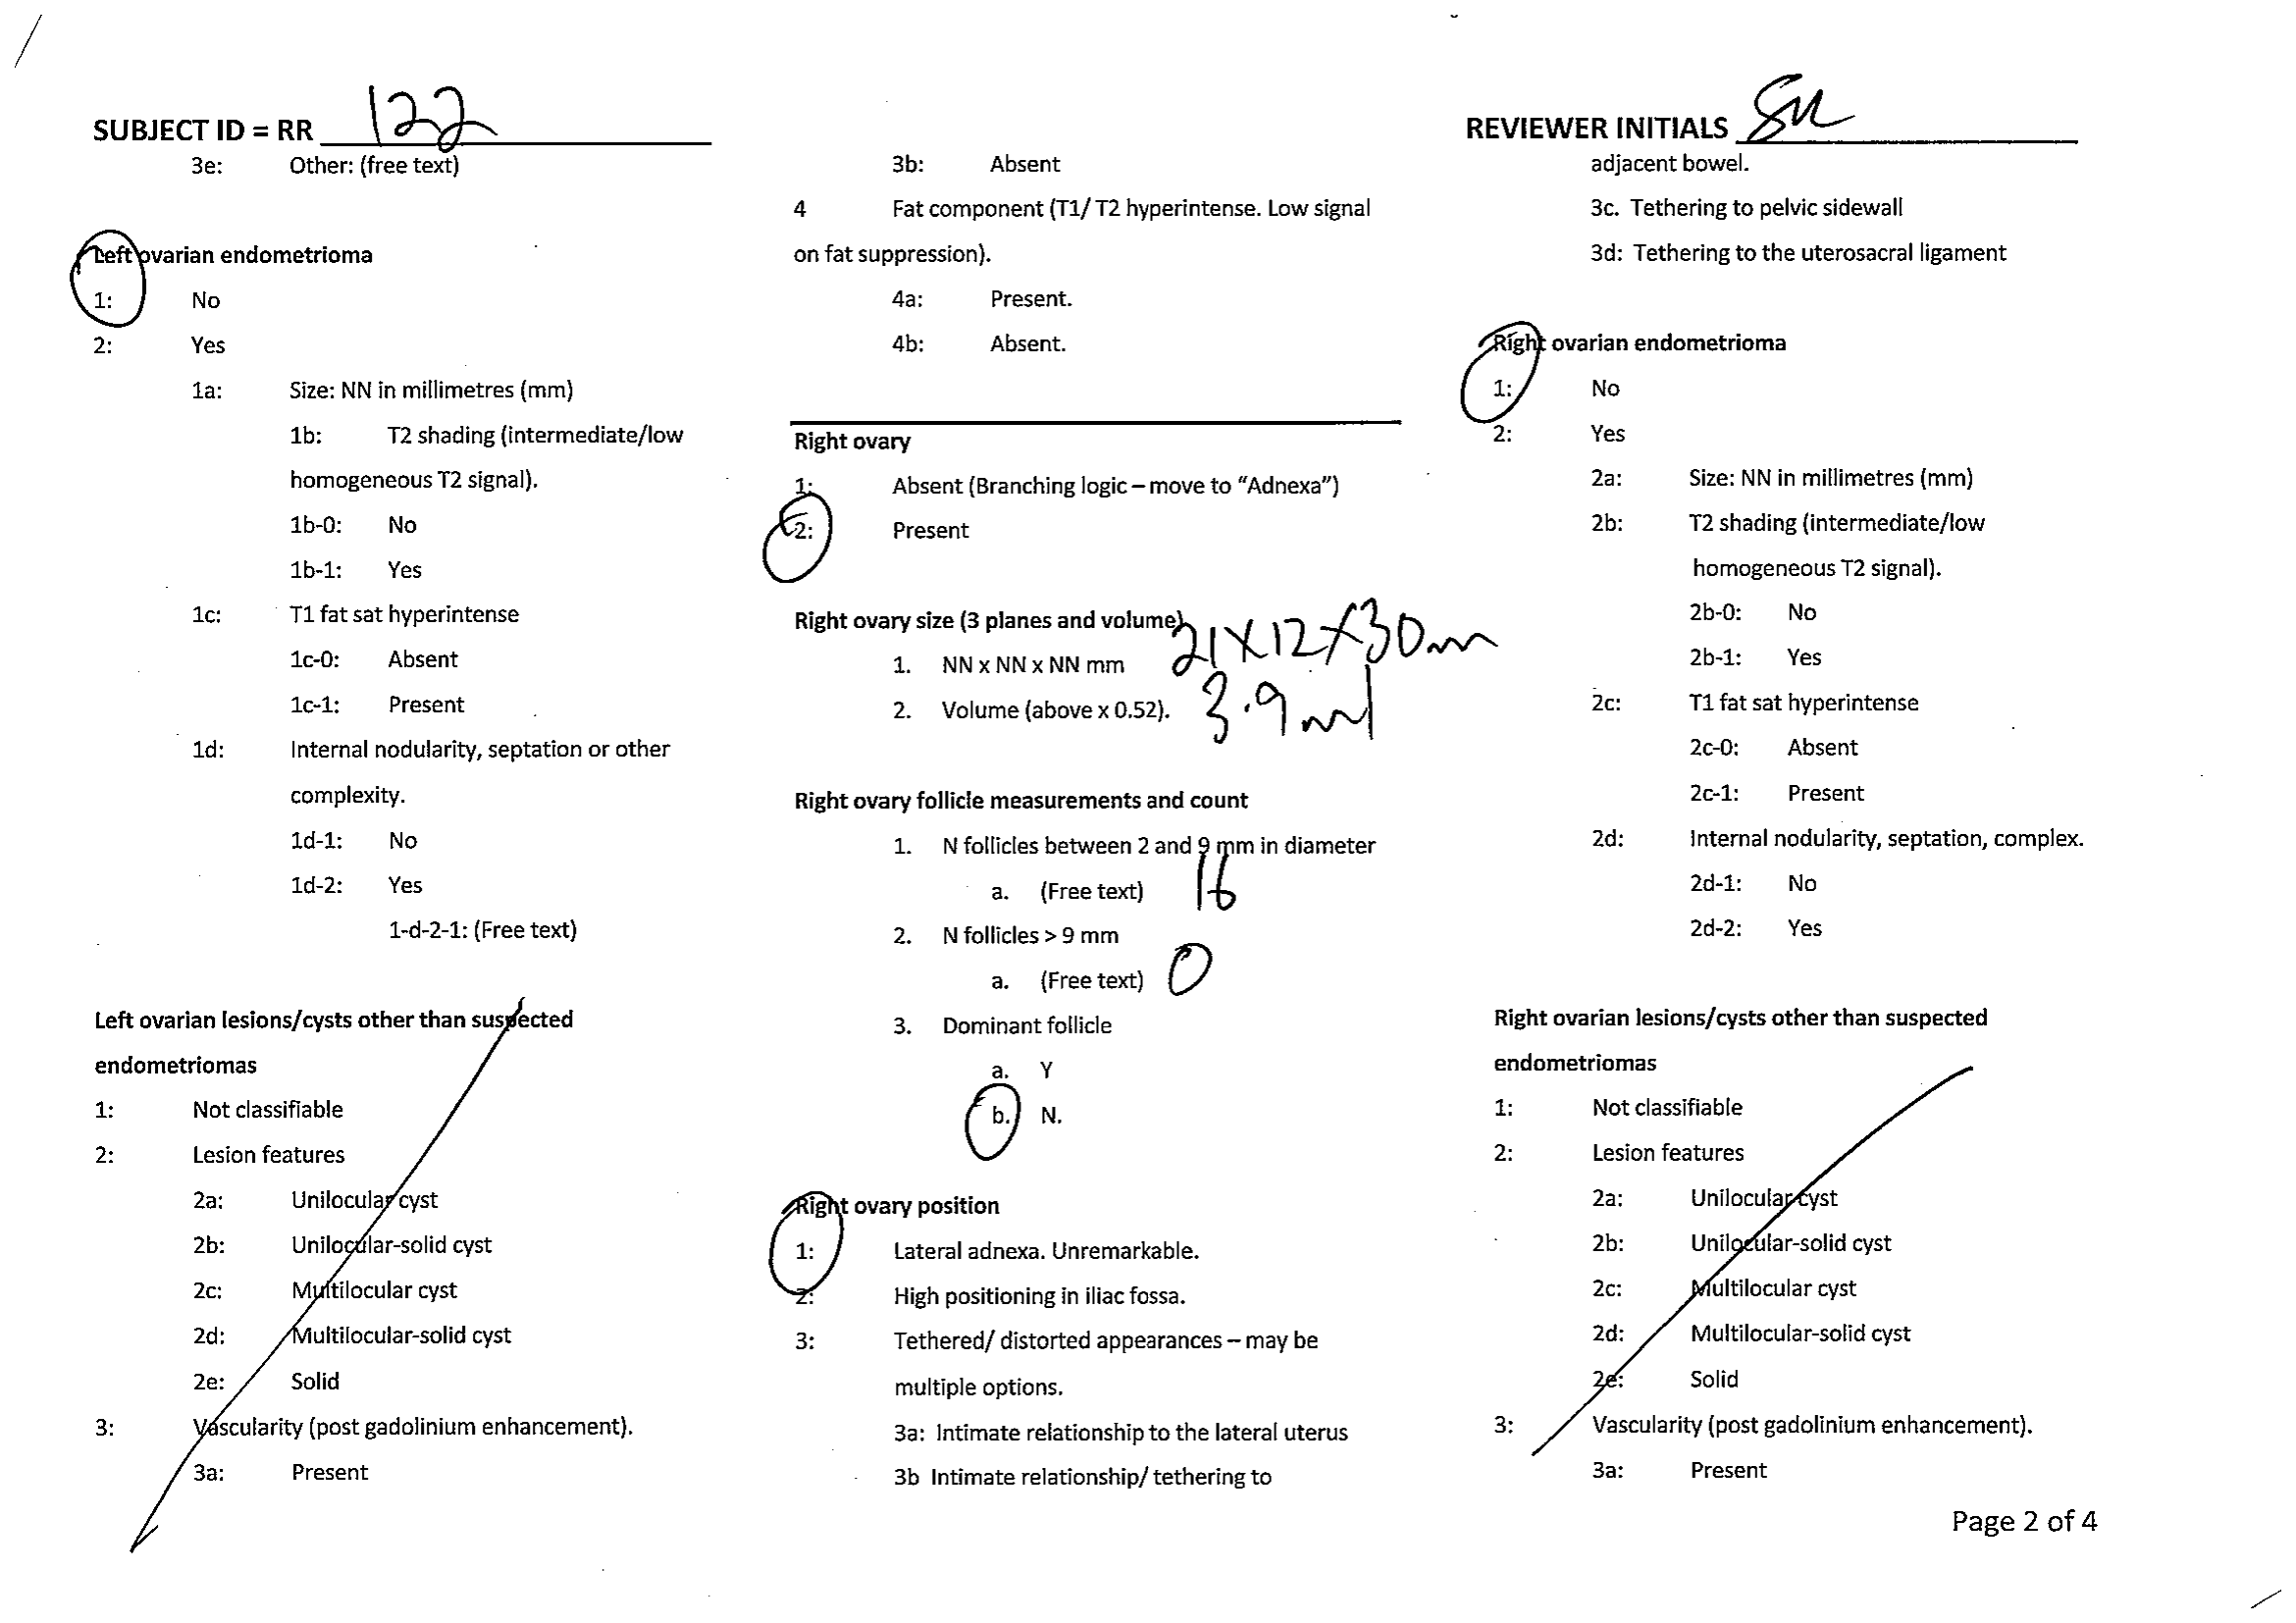 SUBJECT ID = RR 122
3e: Other: (free text)
Left ovarian endometrioma
1: No
2: Yes
1a: Size: NN in millimetres (mm)
1b: T2 shading (intermediate/low
homogeneous T2 signal).
1b-0: No
1b-1: Yes
1c: T1 fat sat hyperintense
1c-0: Absent
1c-1: Present
1d: Internal nodularity, septation or other
complexity.
1d-1: No
1d-2: Yes
1-d-2-1: (Free text)
Left ovarian lesions/cysts other than suspected
endometriomas
1: Not classifiable
2: Lesion features
2a: Unilocular cyst
2b: Unilocular-solid cyst
2c: Multilocular cyst
2d: Multilocular-solid cyst
2e: Solid
3: Vascularity (post gadolinium enhancement).
3a: Present
3b: Absent
4 Fat component (T1/ T2 hyperintense. Low signal
on fat suppression).
4a: Present.
4b: Absent.
Right ovary
1: Absent (Branching logic – move to “Adnexa”)
2: Present
Right ovary size (3 planes and volume)
1. NN x NN x NN mm 21X12X30mm
2. Volume (above x 0.52). 3.9ml
Right ovary follicle measurements and count
1. N follicles between 2 and 9 mm in diameter
a. (Free text) 16
2. N follicles > 9 mm
a. (Free text) 0
3. Dominant follicle
a. Y
b. N.
Right ovary position
1: Lateral adnexa. Unremarkable.
2: High positioning in iliac fossa.
3: Tethered/ distorted appearances – may be
multiple options.
3a: Intimate relationship to the lateral uterus
3b Intimate relationship/ tethering to
REVIEWER INITIALS
adjacent bowel.
3c. Tethering to pelvic sidewall
3d: Tethering to the uterosacral ligament
Right ovarian endometrioma
1: No
2: Yes
2a: Size: NN in millimetres (mm)
2b: T2 shading (intermediate/low
homogeneous T2 signal).
2b-0: No
2b-1: Yes
2c: T1 fat sat hyperintense
2c-0: Absent
2c-1: Present
2d: Internal nodularity, septation, complex.
2d-1: No
2d-2: Yes
Right ovarian lesions/cysts other than suspected
endometriomas
1: Not classifiable
2: Lesion features
2a: Unilocular cyst
2b: Unilocular-solid cyst
2c: Multilocular cyst
2d: Multilocular-solid cyst
2e: Solid
3: Vascularity (post gadolinium enhancement).
3a: Present
Page 2 of 4